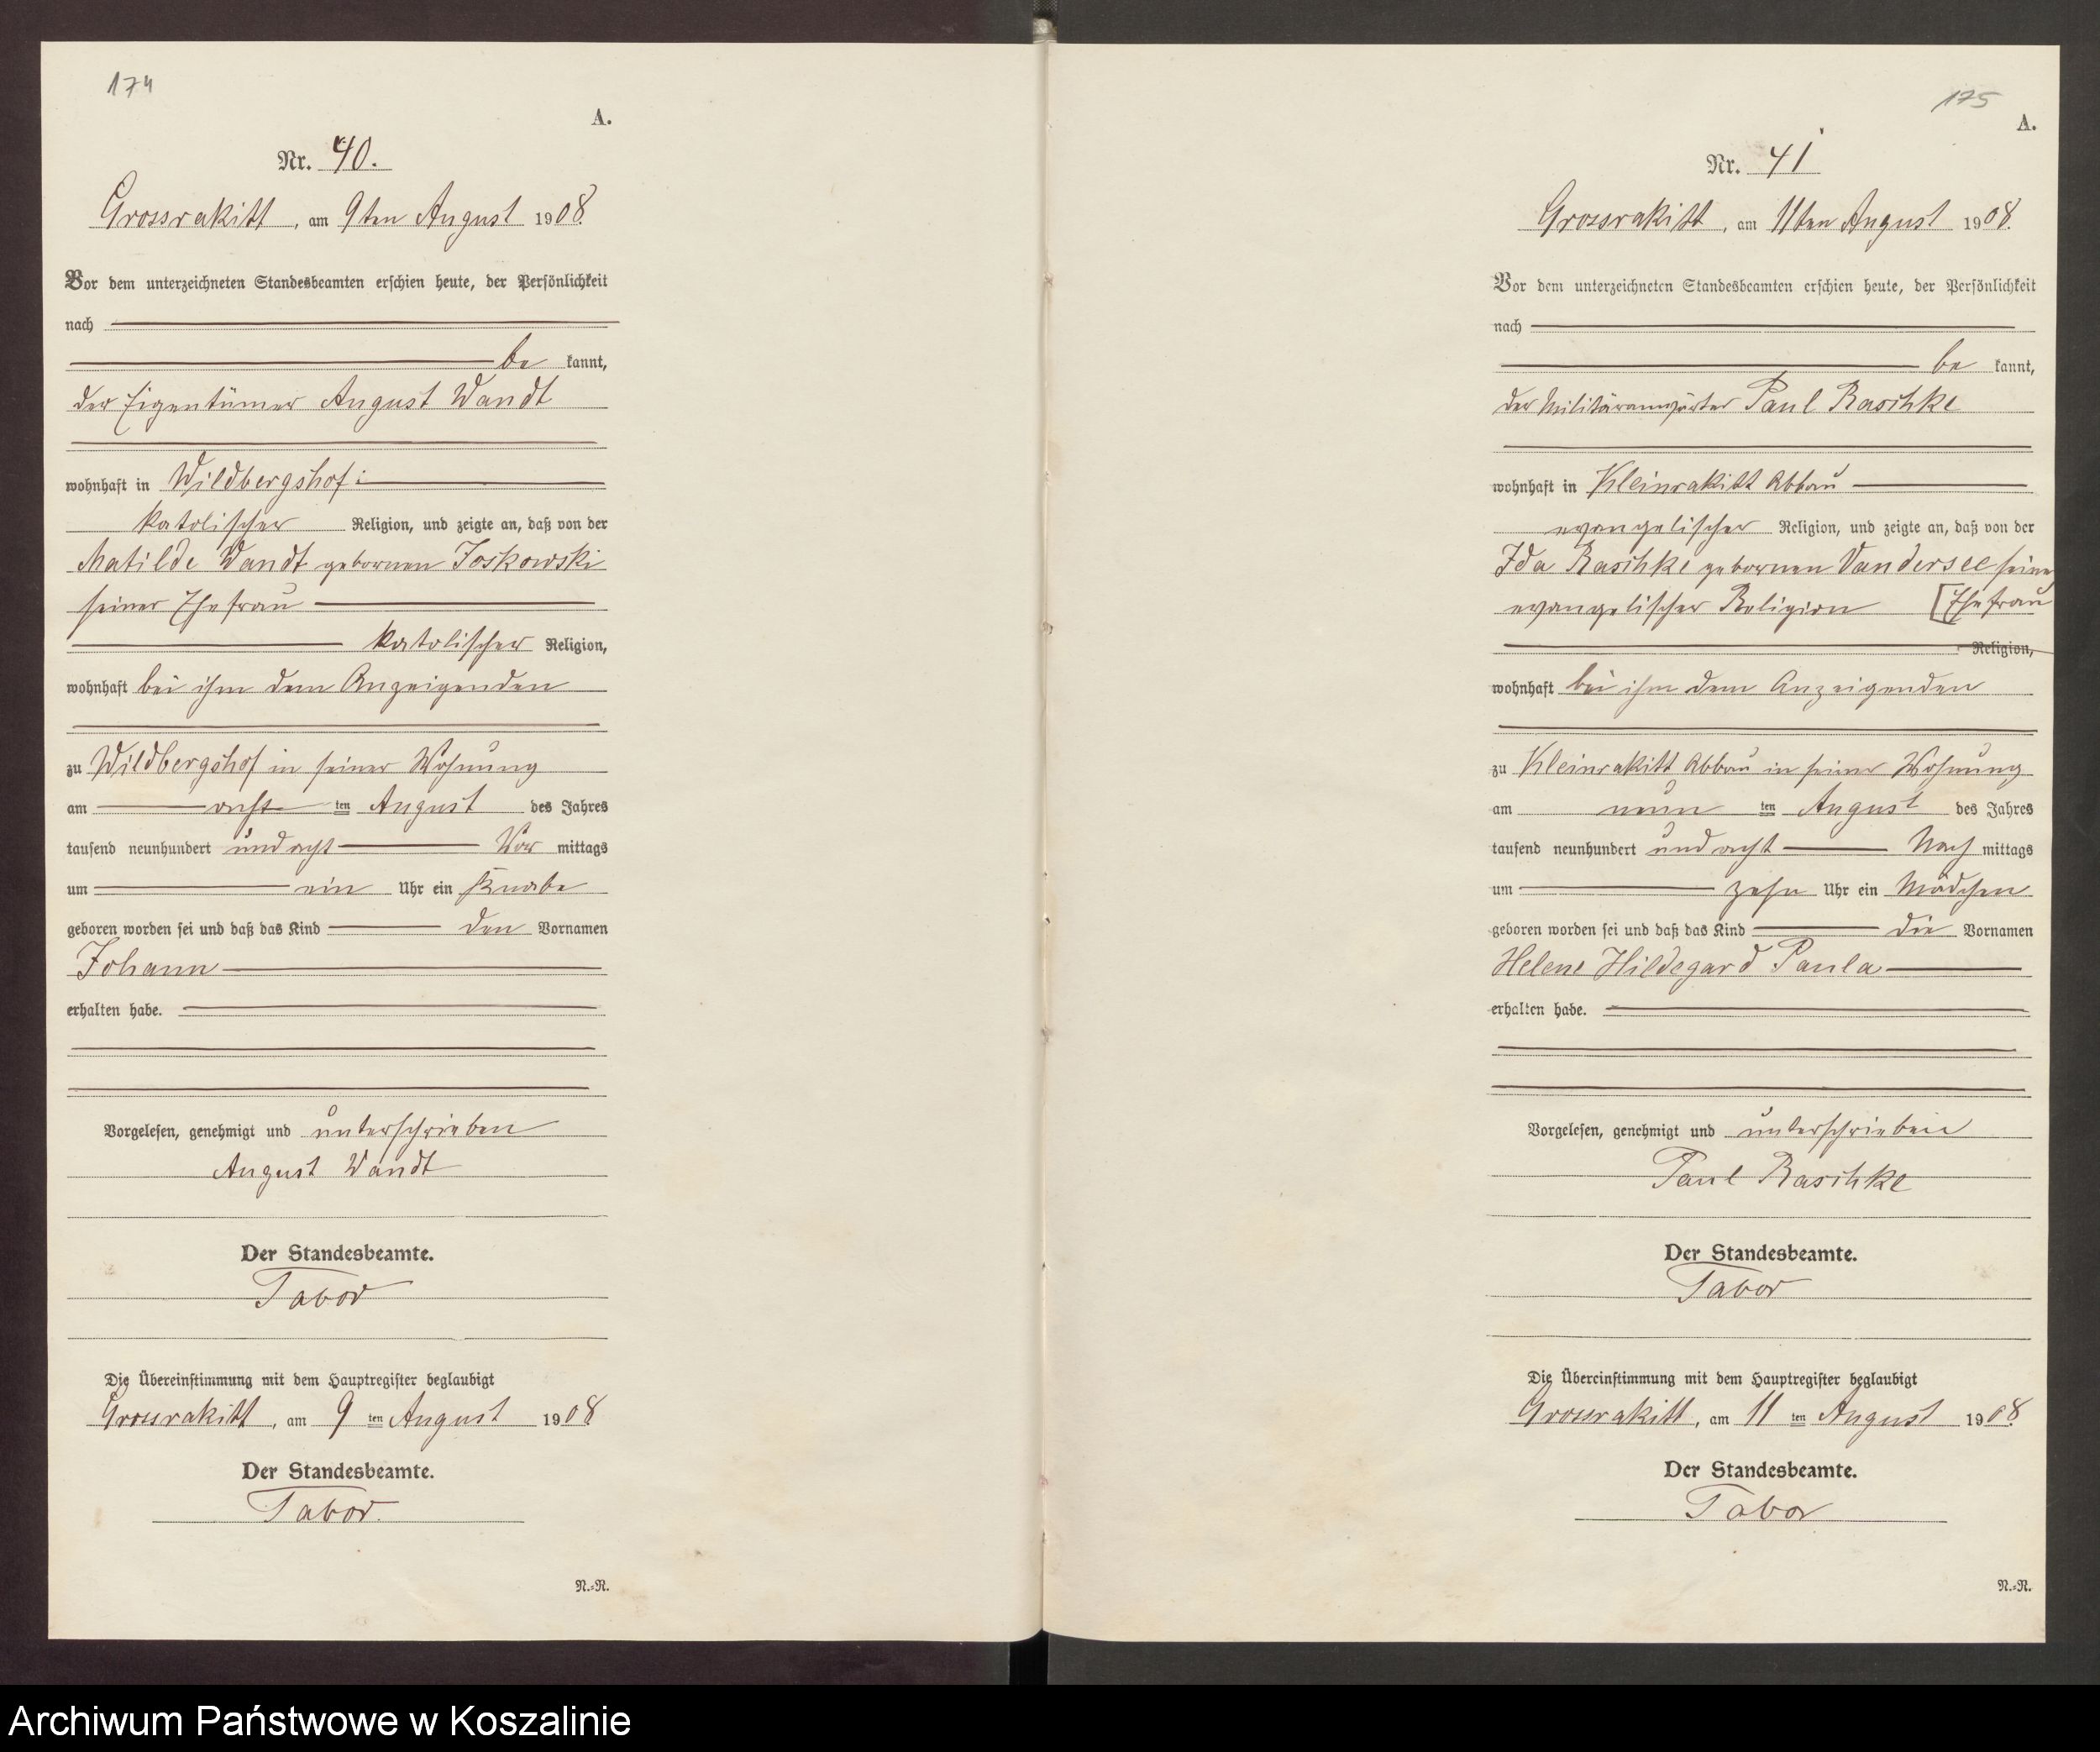 174
A.
Nr. 40.
Grossrakitt, am 9ten August 1908.
Vor dem unterzeichneten Standesbeamten erschien heute, der Persönlichkeit
nach
be kannt,
der Eigentümer August Wandt
wohnhaft in Wildbergshof
katolischer Religion, und zeigte an, daß von der
Matilde Wandt gebornen Joskowski
seiner Ehefrau
katolischer Religion,
wohnhaft bei ihm dem Anzeigenden
zu Wildbergshof in seiner Wohnung
am acht ten August des Jahres
tausend neunhundert und acht Vor mittags
um ein Uhr ein Knabe
geboren worden sei und daß das Kind den Vornamen
Johann
erhalten habe.
Vorgelesen, genehmigt und unterschrieben
August Wandt
Der Standesbeamte.
Tabor
Die Übereinstimmung mit dem Hauptregister beglaubigt
Grossrakitt, am 9 ten August 1908.
Der Standesbeamte.
Tabor.
N.=N.
175
A.
Nr. 41
Grossrakitt, am 11ten August 1908.
Vor dem unterzeichneten Standesbeamten erschien heute, der Persönlichkeit
nach
be kannt,
der Militäranwärter Paul Raschke
wohnhaft in Kleinrakitt Abbau
evangelischer Religion, und zeigte an, daß von der
Ida Raschke gebornen Vandersee seiner
evangelischer Religion [Ehefrau
Religion,
wohnhaft bei ihm dem Anzeigenden
zu Kleinrakitt Abbau in seiner Wohnung
am neun ten August des Jahres
tausend neunhundert und acht Nach mittags
um zehn Uhr ein Mädchen
geboren worden sei und daß das Kind die Vornamen
Helene Hildegard Paula
erhalten habe.
Vorgelesen, genehmigt und unterschrieben
Paul Raschke
Der Standesbeamte.
Tabor
Die Übereinstimmung mit dem Hauptregister beglaubigt
Grossrakitt, am 11 ten August 1908.
Der Standesbeamte.
Tabor
N.=N.
Archiwum Państwowe w Koszalinie